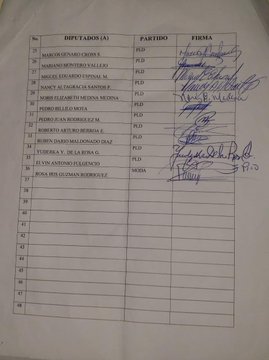 No. DIPUTADOS (A) PARTIDO FIRMA
25 MARCOS GENARO CROSS S. PLD
26 MARIANO MONTERO VALLEJO PLD
27 MIGUEL EDUARDO ESPINAL M. PLD
28 NANCY ALTAGRACIA SANTOS P. PLD
29 NORIS ELIZABETH MEDINA MEDINA PLD
30 PEDRO BILLILO MOTA PLD
31 PEDRO JUAN RODRIGUEZ M. PLD
32 ROBERTO ARTURO BERROA E. PLD
33 RUBEN DARIO MALDONADO DIAZ PLD
34 YUDERKA Y. DE LA ROSA G. PLD
35 ELVIN ANTONIO FULGENCIO PLD
36 ROSA IRIS GUZMAN RODRIGUEZ MODA
37
38
39
40
41
42
43
44
45
46
47
48